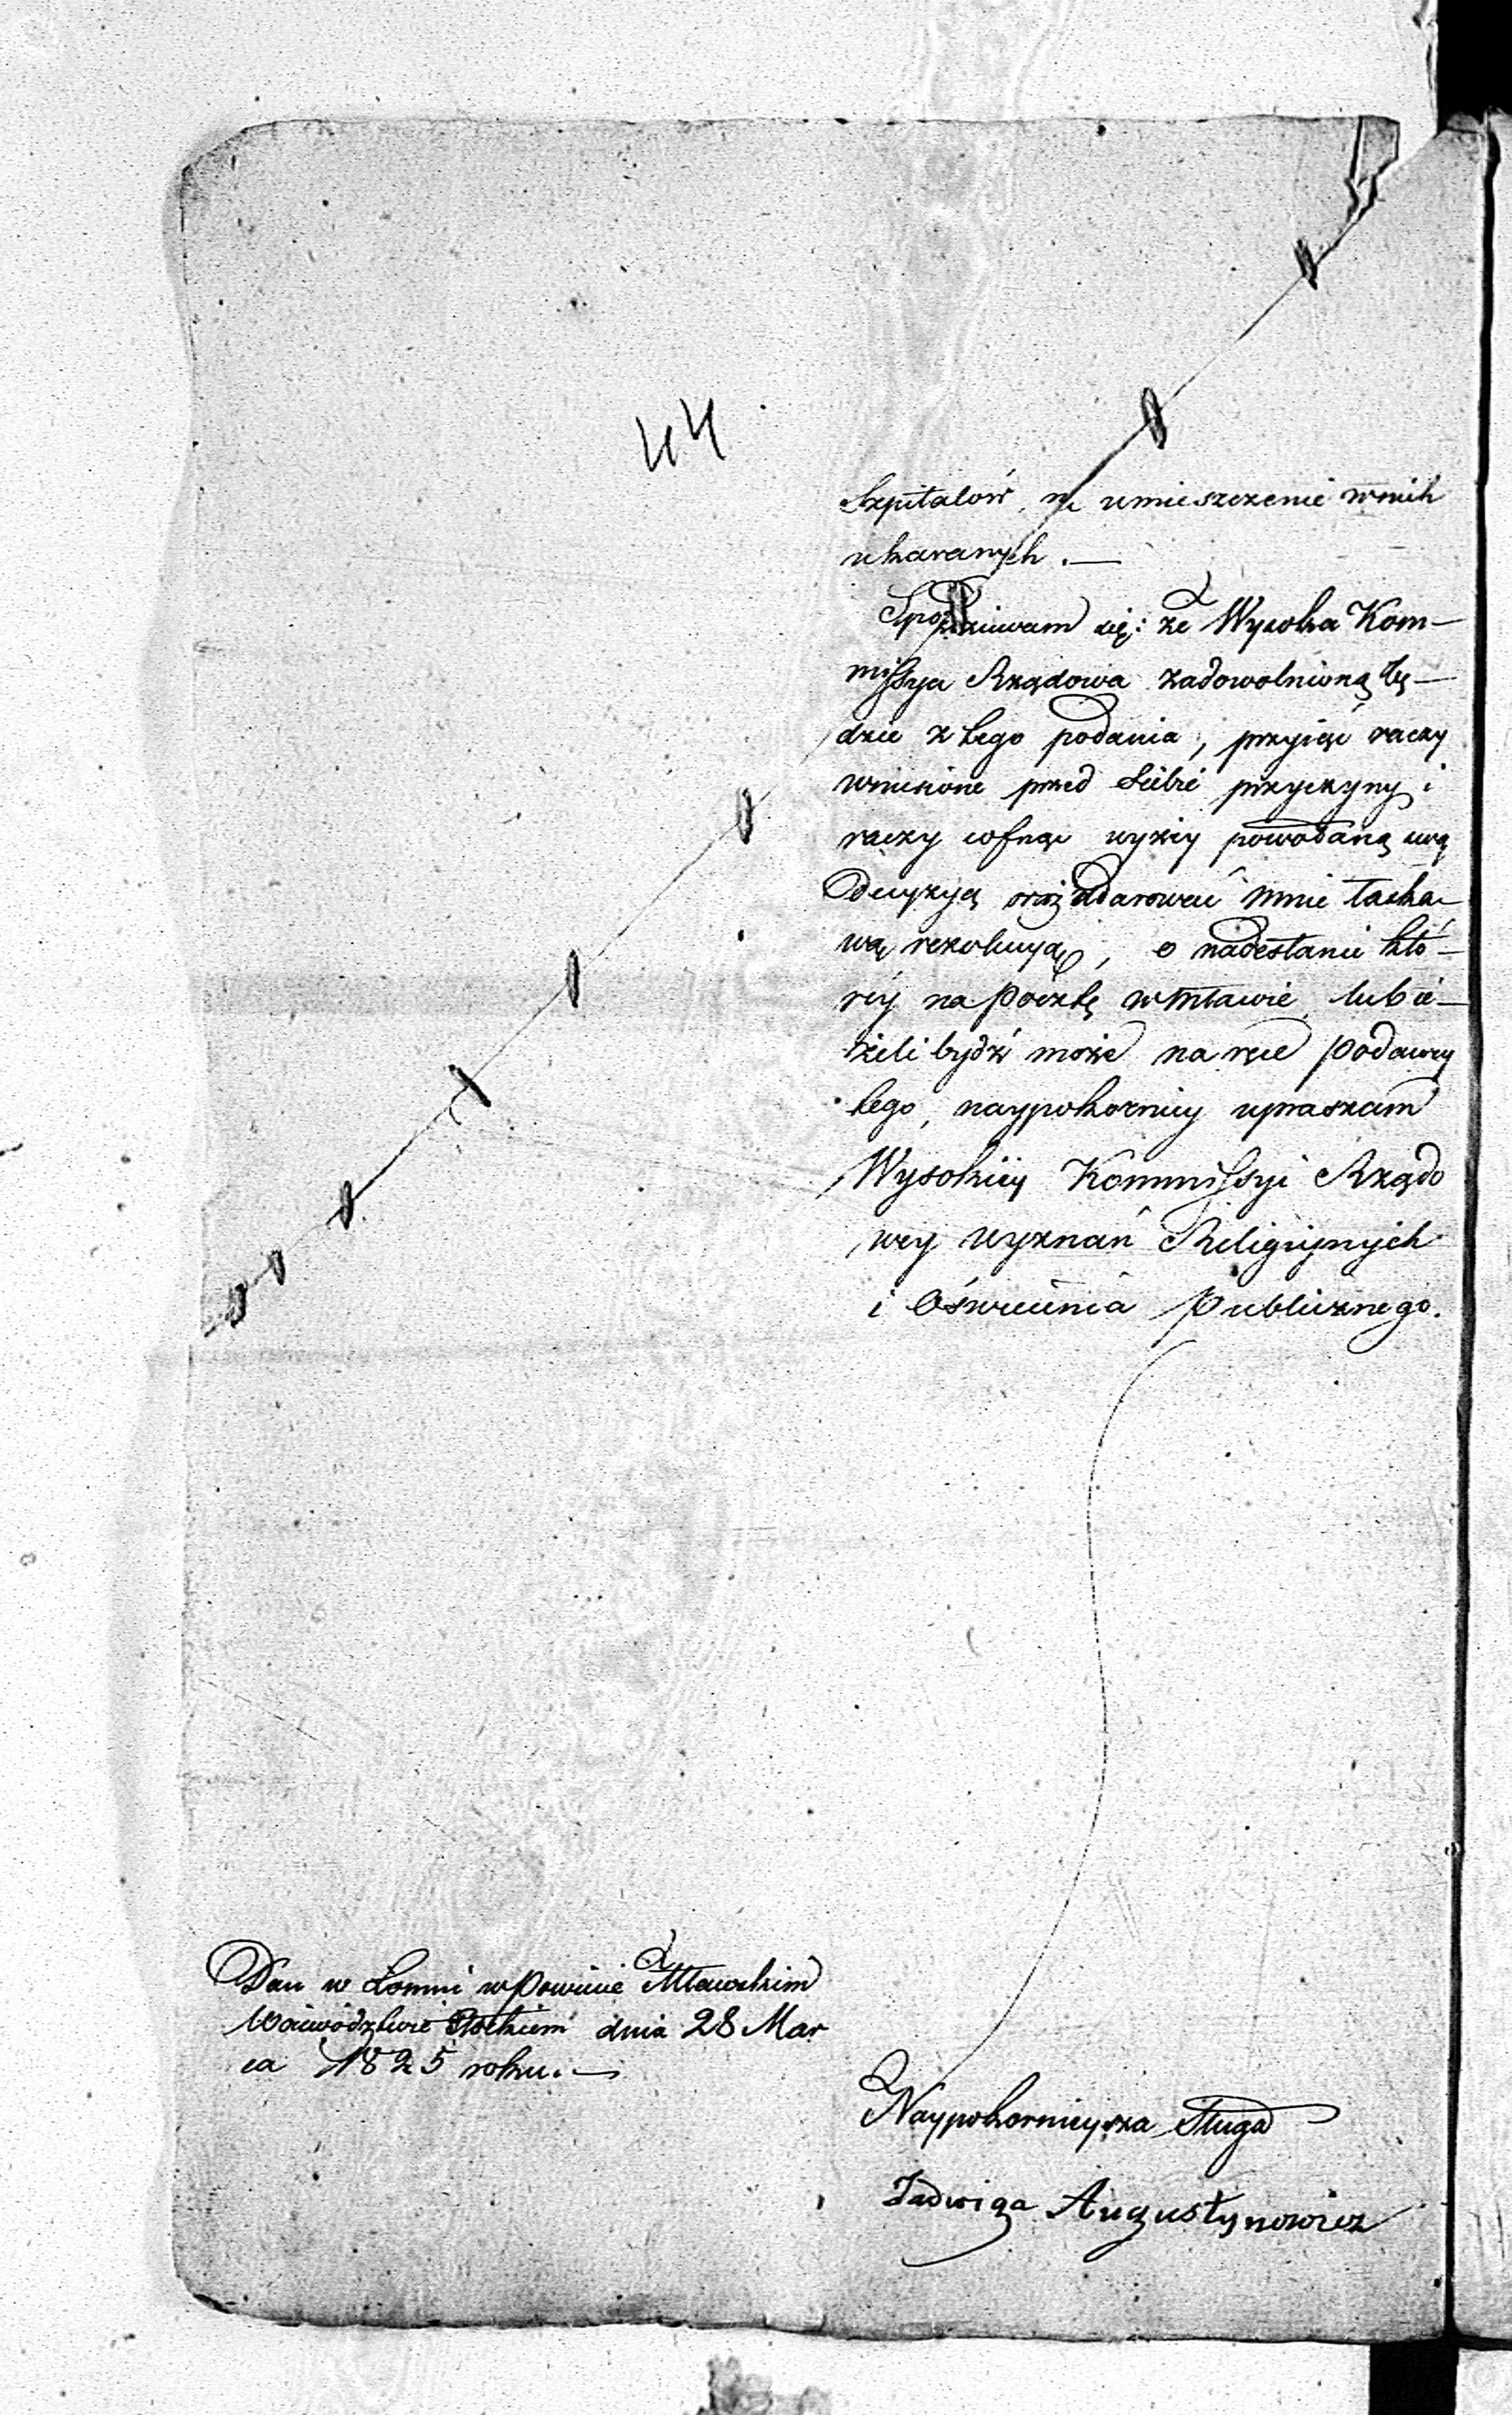 44
Szpitalów, na umieszczenie w nich
ukaranych. —
Spodziewam się: że Wysoka Kom-
missya Rządowa zadowolnioną bę-
dzie z tego podania, przyiąć raczy
wniesione przed Siebie przyczyny i
raczy cofnąć wyżey powołaną swą
Decyzyą oraz udarować mnie łaska-
wą rezolucyą, o nadesłanie któ-
rey na Pocztę w Mławie, lub ie-
żeli bydź może na ręce Podawcy
tego, naypokorniey upraszam
Wysokiey Kommissyi Rządo
wey Wyznań Religiynych
i Oświecenia Publicznego.
Dan w Łomni w Powiecie Mławskim
Woiewództwie Płockiem dnia 28 Mar
ca 1825 roku. —
Naypokornieysza Sługa
Jadwiga Augustynowicz